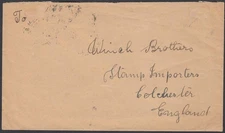 To
Winch Brothers
Stamp Importers
Colchester
England